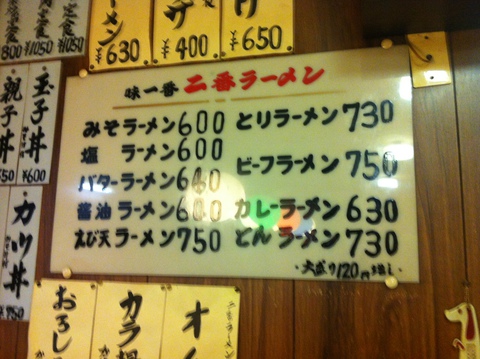 ¥1050
¥1050
800
ラーメン
¥630
¥400
¥650
味一番 二番ラーメン
みそラーメン600
塩 ラーメン600
バターラーメン
醤油ラーメン
えび天ラーメン750
とりラーメン730
ビーフラーメン750
カレーラーメン630
とんラーメン730
大盛り120円増し
玉子丼
¥600
親子丼
カツ丼
おろし
カラ揚
オ